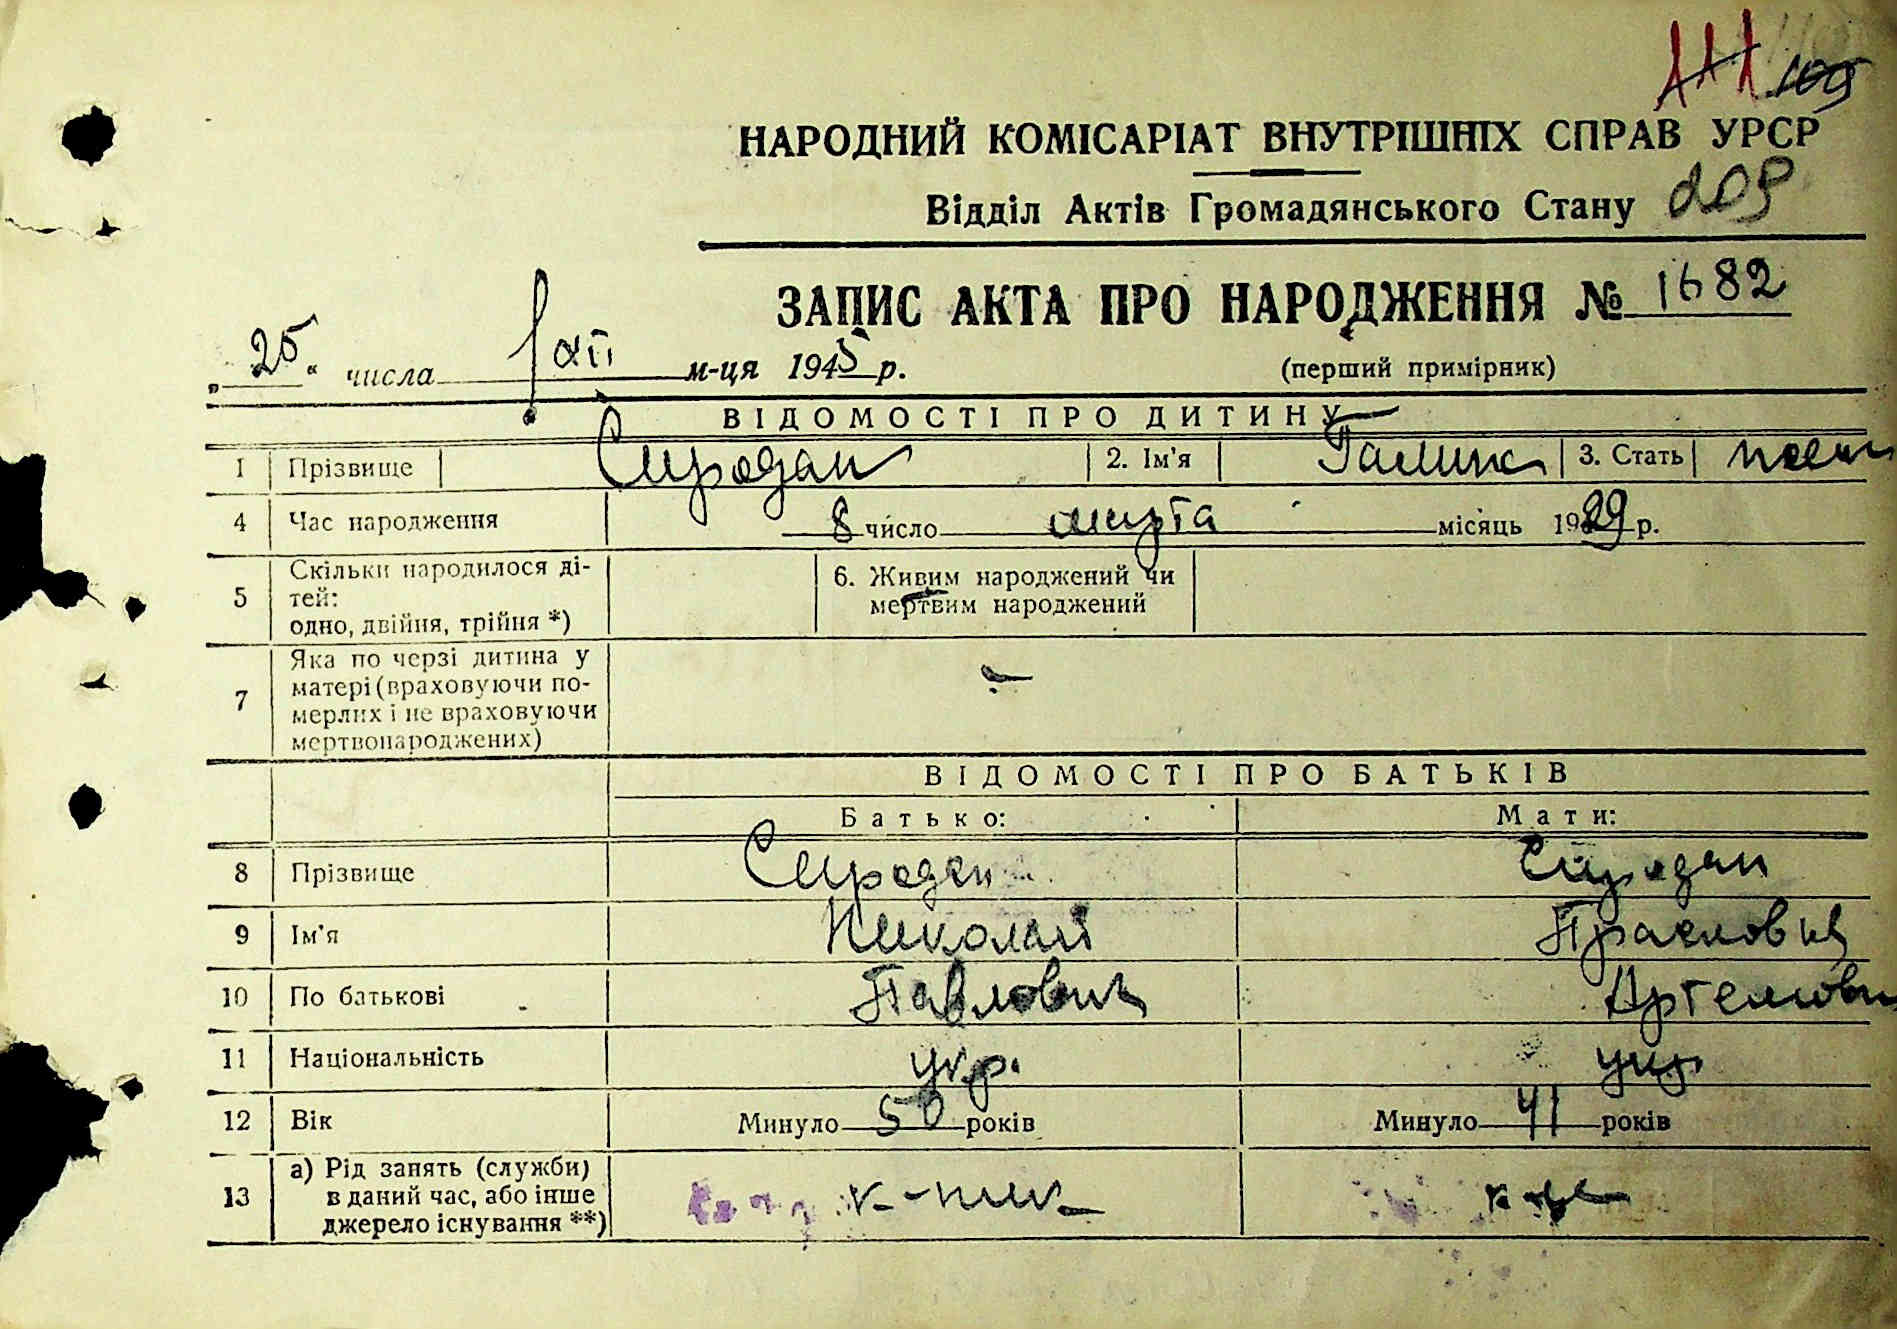 111 109
НАРОДНИЙ КОМІСАРІАТ ВНУТРІШНІХ СПРАВ УРСР
Відділ Актів Громадянського Стану 209
ЗАПИС АКТА ПРО НАРОДЖЕННЯ № 1682
„25“ числа XII м-ця 1945 р. (перший примірник)
ВІДОМОСТІ ПРО ДИТИНУ
1 Прізвище 2. Ім'я Галина 3. Стать жен
4 Час народження 8 число марта місяць 1929 р.
5 Скільки народилося ді-
тей:
одно, двійня, трійня *)
6. Живим народжений чи
мертвим народжений
7 Яка по черзі дитина у
матері (враховуючи по-
мерлих і не враховуючи
мертвонароджених) -
ВІДОМОСТІ ПРО БАТЬКІВ
Батько: Мати:
8 Прізвище
9 Ім'я Николай
10 По батькові Павлович
11 Національність укр. укр.
12 Вік Минуло 50 років Минуло 41 років
13 а) Рід занять (служби)
в даний час, або інше
джерело існування **)
к-ник